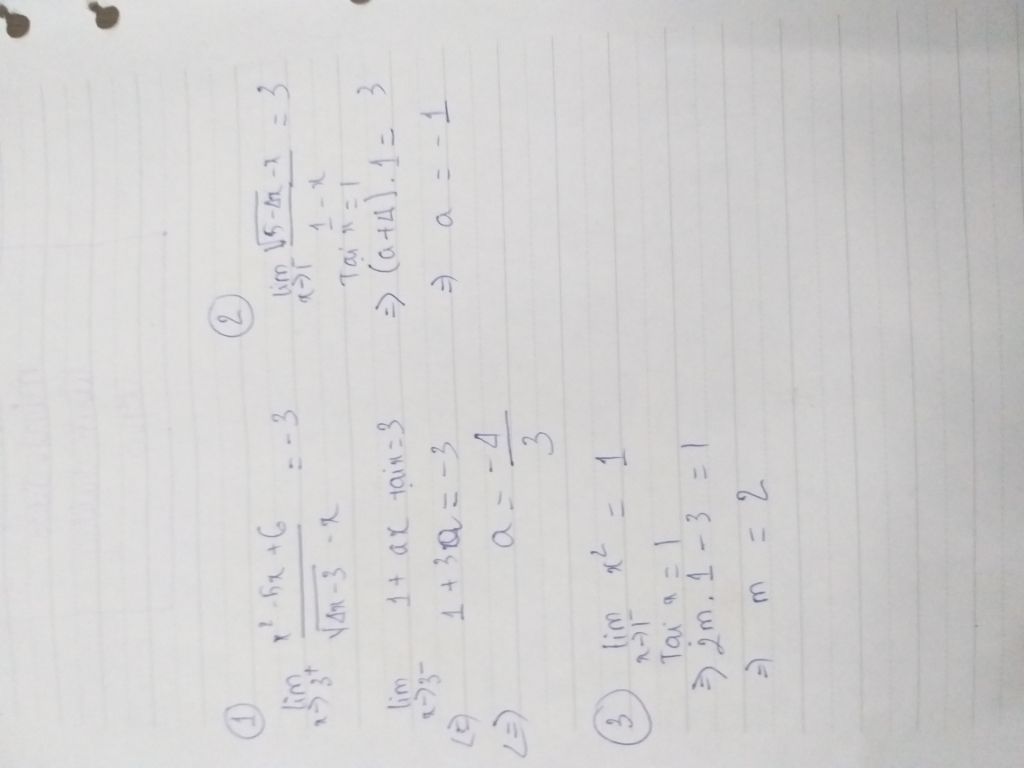 ①
lim x→3⁺ (x² - 5x + 6)/(√(4x-3) - x) = -3
lim x→3⁻ 1 + ax tại x = 3
(=) 1 + 3a = -3
(=) a = -4/3
②
lim x→1⁻ = 3
Tại x = 1
=> (a+4).1 = 3
=> a = -1
③
lim x→1⁻ x² = 1
Tại x = 1
=> 2m.1 - 3 = 1
=> m = 2